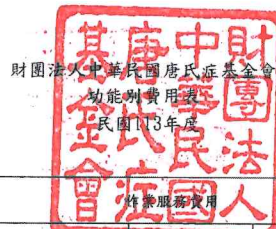 財團法人中華民國唐氏症基金會
功能別費用表
民國113年度
作業服務費用
財團法人
中華民國
唐氏症
基金會